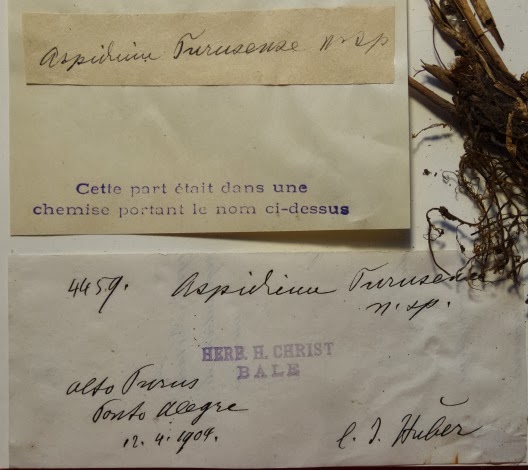 Aspidium Purusense n. sp
Cette part était dans une
chemise portant le nom ci-dessus
4459. Aspidium Purusense
n. sp.
HERB. H. CHRIST
BALE
Alto Purus
Ponto Alegre
12. 4. 1904.
l. J. Huber